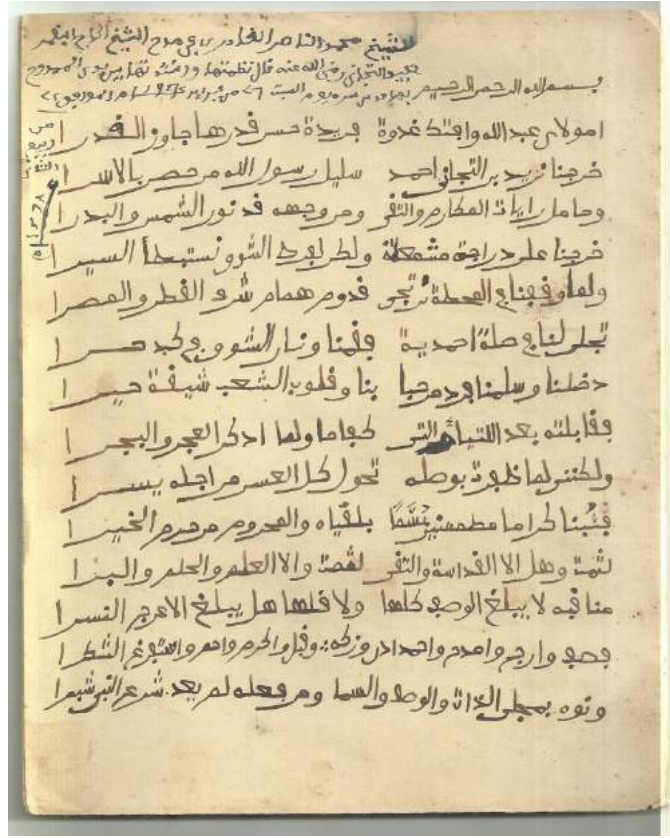 للشيخ محمد الناصر الكبري في مدح الشيخ
التجاني رضي الله عنه قال نظمتها وانشدتها بين يدي الممدوح
بسم الله الرحمن الرحيم يوم السبت
امولاي عبد الله وافتك غدوة فريدة حسن قدرها جاوز القدرا
خرجنا نريد بن التجاني احمد سليل رسول الله من خص بالاسرا
وحامل رايات المكارم والتقى ومن وجهه فد نور الشمس والبدرا
خرجنا على دراجة مشمعلة ولكن لفرط الشوق نستبطأ السيرا
ولما وقفنا في المحطة نرتجي قدوم همام شرف القطر والعصرا
تجلى لنا في حلة احمدية فقمنا ونار الشوق في كبد حرا
دخلنا وسلمنا فرد مرحبا بنا وقلوب الشعب شيقة حيرا
فقابلته بعد اللتيا والتي كفاحا ولما اذكر العجر والبجرا
ولكنني لما ظفرت بوصله تحول كل العسر من اجله يسرا
فئبنا كراما مطمئنين بسما بلقياه والمحروم من حرم الخيرا
لثمت وهل الا القداسة والتقى لثمت والا العلم والحلم والبرا
مناقبه لا يبلغ الوصف كلها ولا قلها هل يبلغ الاعرج النسرا
فصف وارج وامدح واحمد وزكه وقل والتزم واستفرغ الشكرا
ونوه بمجلى الذات والوصف والسما ومن فعله لم يعد شرع النبي شبرا
من
ربيع
الثاني
١٣٦٨ه